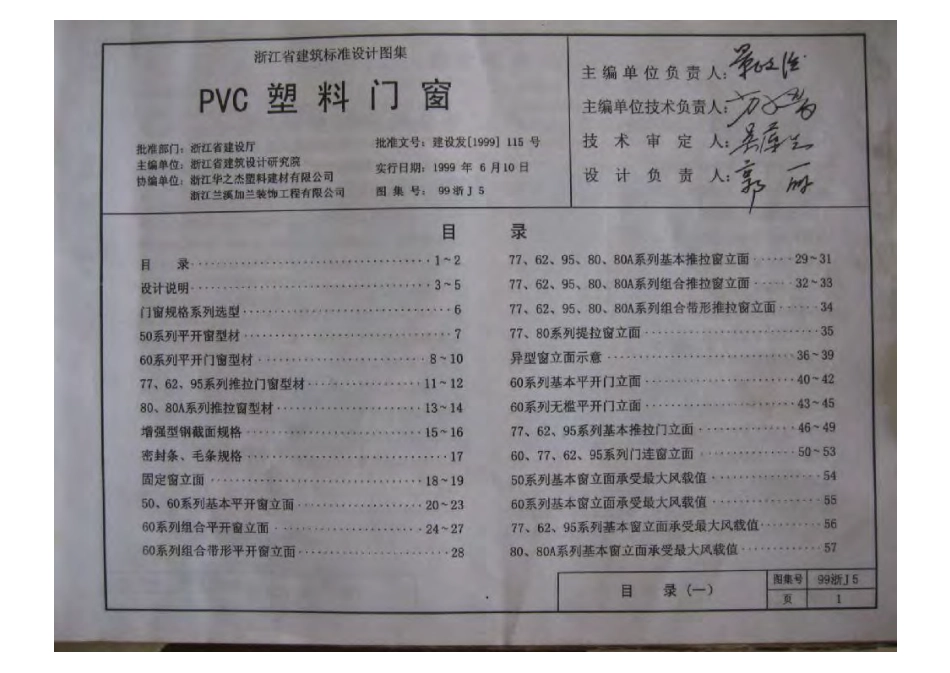 浙江省建筑标准设计图集
PVC 塑料门窗
批准部门：浙江省建设厅
主编单位：浙江省建筑设计研究院
协编单位：浙江华之杰塑料建材有限公司
浙江兰溪加兰装饰工程有限公司
批准文号：建设发[1999] 115 号
实行日期：1999 年 6 月 10 日
图 集 号：99浙J5
主编单位负责人：
主编单位技术负责人：
技 术 审 定 人：
设 计 负 责 人：
目 录
目 录 1~2
设计说明 3~5
门窗规格系列选型 6
50系列平开窗型材 7
60系列平开门窗型材 8~10
77、62、95系列推拉门窗型材 11~12
80、80A系列推拉窗型材 13~14
增强型钢截面规格 15~16
密封条、毛条规格 17
固定窗立面 18~19
50、60系列基本平开窗立面 20~23
60系列组合平开窗立面 24~27
60系列组合带形平开窗立面 28
77、62、95、80、80A系列基本推拉窗立面 29~31
77、62、95、80、80A系列组合推拉窗立面 32~33
77、62、95、80、80A系列组合带形推拉窗立面 34
77、80系列提拉窗立面 35
异型窗立面示意 36~39
60系列基本平开门立面 40~42
60系列无槛平开门立面 43~45
77、62、95系列基本推拉门立面 46~49
60、77、62、95系列门连窗立面 50~53
50系列基本窗立面承受最大风载值 54
60系列基本窗立面承受最大风载值 55
77、62、95系列基本窗立面承受最大风载值 56
80、80A系列基本窗立面承受最大风载值 57
目 录（一）
图集号 99浙J5
页 1